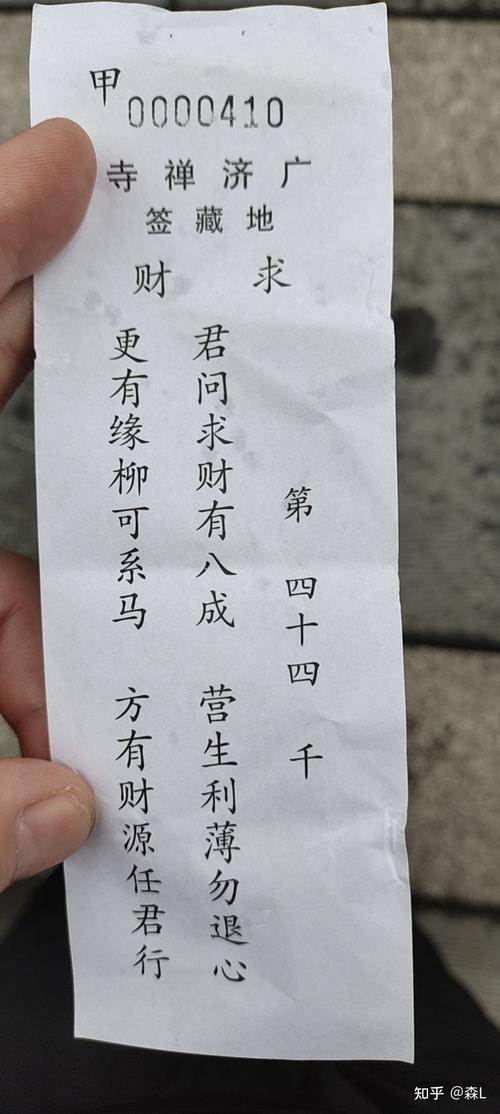 甲
0000410
广济禅寺
地藏签
求财
第四十四 千
君问求财有八成 营生利薄勿退心
更有缘柳可系马 方有财源任君行
知乎 @森L